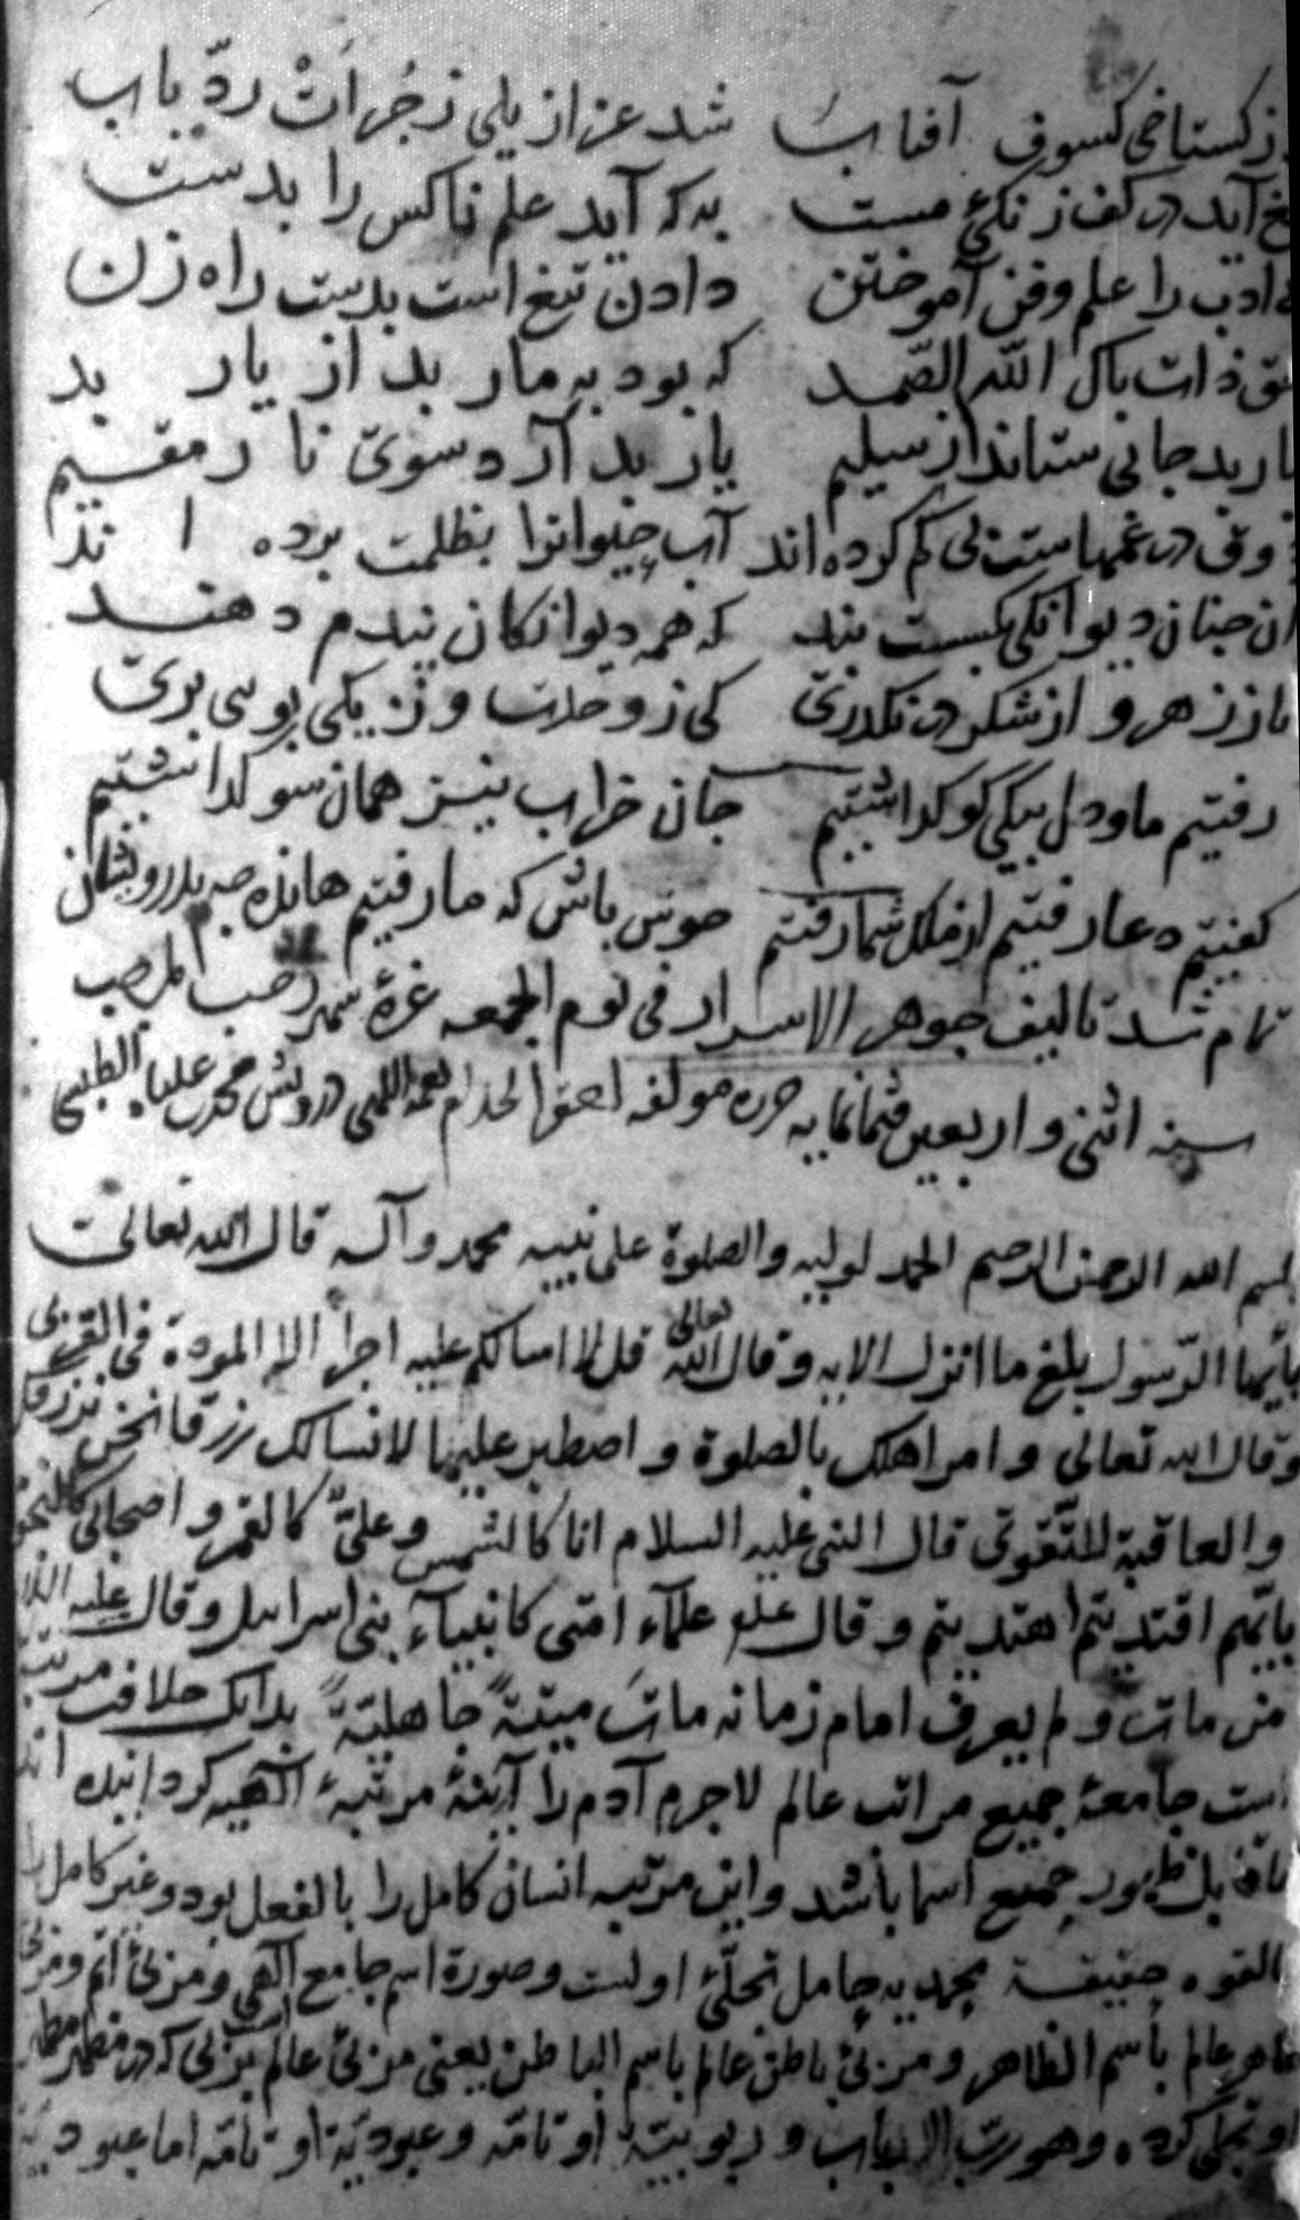 ز گستاخی کسوف آفتاب شد عزازیلی ز جرات ردّ باب
تیغ آید در کف زنگئ مست به که آید علم ناکس را بدست
ادب را علم و فن آموختن دادن تیغ است بدست راه زن
ذات پاک الله الصّمد که بود به مار بد از یار بد
مار بد جانی ستاند از سلیم یار بد آرد سوی نار مقیم
ذوق در غمهاست پی کم کرده اند آب حیوانرا بظلمت برده اند
ان چنان دیوانگی بگسست بند که همه دیوانگان پندم دهند
تا ز زهر و از شکر در نگذری کی ز وحدت وز یکی بویی بری
رفتیم ما و دل بیکی کو گذاشتیم جان خراب نیز همان سو گذاشتیم
گفتیم دعا رفتیم از ملک شما رفتیم خوش باش که ما رفتیم
تمام شد تالیف جوهر الاسرار فی یوم الجمعه غرهٔ شهر رجب المرجب
سنه اثنی و اربعین فثمانمایه حرره مولفه احقر الخدام درویش محمد الطبسی
بسم الله الرحمن الرحیم الحمد لولیه والصلوة علی نبیه محمد وآله قال الله تعالی
یاأیها الرّسول بلغ ما انزل الایه وقال الله تعالی قل لا اسالکم علیه اجراً الا المودة فی القربی
وقال الله تعالی وامر اهلک بالصلوة واصطبر علیها لانسالک رزقا نحن نرزقک
والعاقبة للتّقوی قال النبی علیه السلام انا کالشمس وعلیّ کالقمر واصحابی کالنجوم
بایّهم اقتدیتم اهتدیتم وقال علماء امتی کانبیاء بنی اسرایل وقال علیه
من مات ولم یعرف امام زمانه مات میتةً جاهلیّةً بدانک خلافت مرتبه
است جامعهٔ جمیع مراتب عالم لاجرم آدم را آینهٔ مرتبهٔ آلهیه گردانیده اند
تا قابل ظهور جمیع اسما باشد واین مرتبه انسان کامل را بالفعل بود وغیر کامل را
بالقوه حقیقة محمدیه حامل تجلّی اولست وصورة اسم جامع آلهی
ظاهر عالم بأسم الظاهر ومربّی باطن عالم باسم الباطن یعنی مربّی عالم
او تجلی کرده وهو ربّ الارباب وربوبیّة او تامّه وعبودیّة او تامّه اما عبودیة